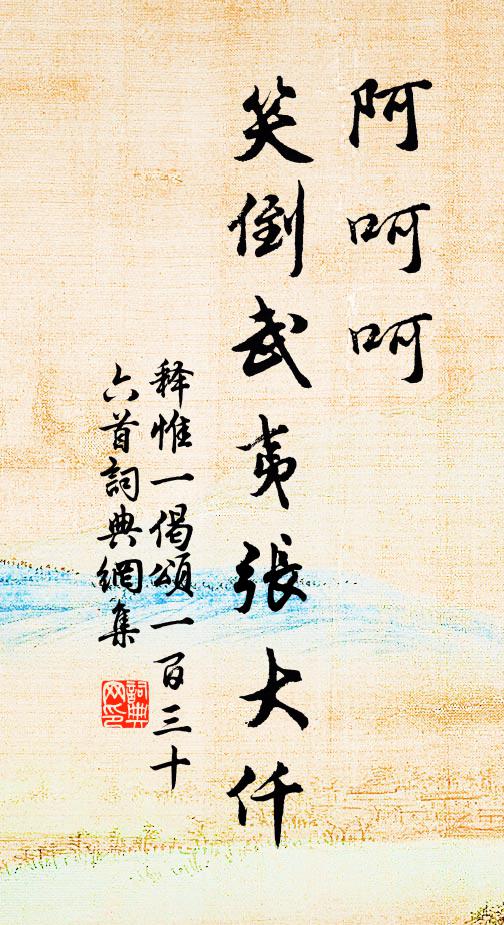 阿呵呵
笑倒武夷張大仟
释惟一偈頌一百三十
六首詞典網集
詞典
网印